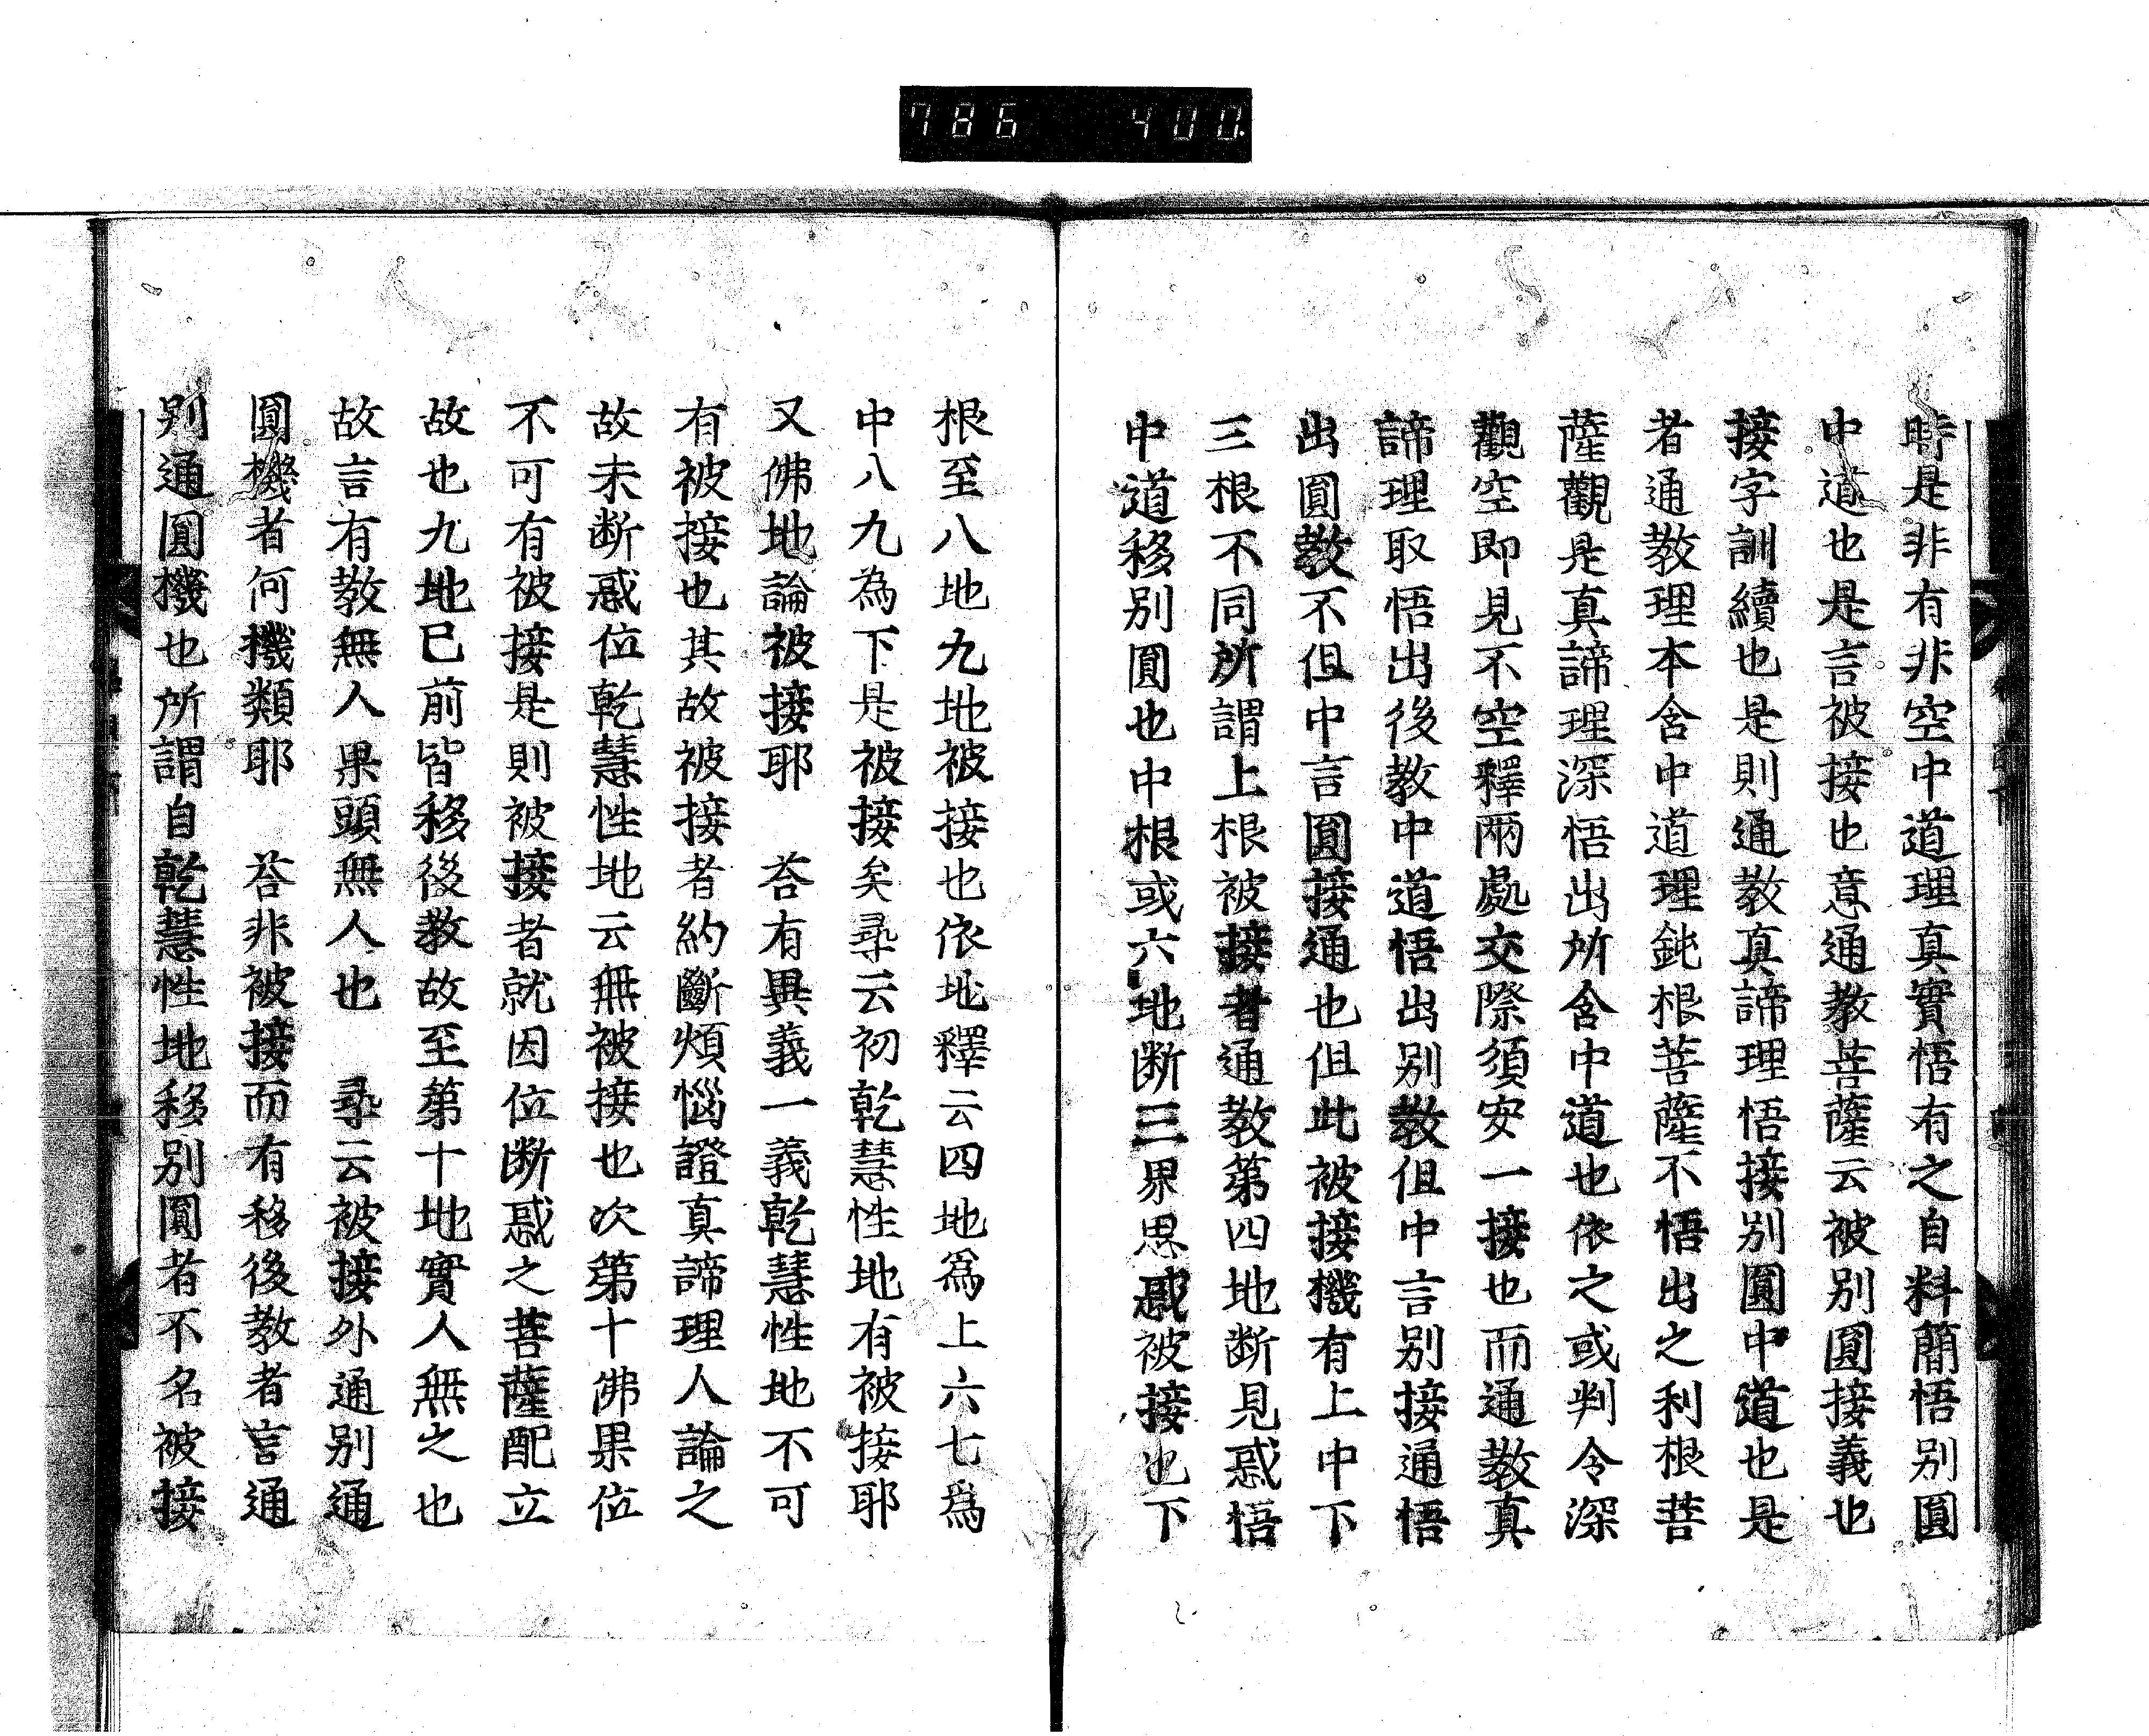 786 400.
時是非有非空中道理真實悟有之自料簡悟别圓
中道也是言被接也意通教菩薩云被别圓接義也
接字訓續也是則通教真諦理悟接别圓中道也是
者通教理本含中道理鈍根菩薩不悟出之利根菩
薩觀是真諦理深悟出所含中道也依之或判令深
觀空即見不空釋兩處交際須安一接也而通教真
諦理取悟出後教中道悟出别教但中言别接通悟
出圓教不但中言圓接通也但此被接機有上中下
三根不同所謂上根被接者通教第四地断見惑悟
中道移别圓也中根或六地断三界思惑被接也下
根至八地九地被接也依地釋云四地爲上六七爲
中八九為下是被接矣尋云初乾慧性地有被接耶
又佛地論被接耶　荅有異義一義乾慧性地不可
有被接也其故被接者約斷煩惱證真諦理人論之
故未断惑位乾慧性地云無被接也次第十佛果位
不可有被接是則被接者就因位断惑之菩薩配立
故也九地已前皆移後教故至第十地實人無之也
故言有教無人果頭無人也　尋云被接外通别通
圓機者何機類耶　荅非被接而有移後教者言通
别通圓機也所謂自乾慧性地移别圓者不名被接